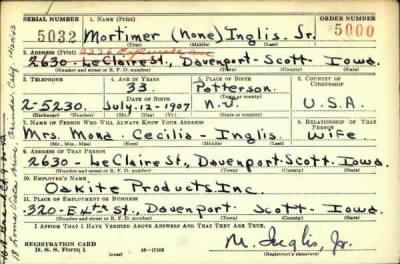 SERIAL NUMBER 1. NAME (Print) ORDER NUMBER
5032 Mortimer (None) Inglis Jr. 5000
(First) (Middle) (Last)
2. ADDRESS (Print)
2630 - Le Claire St., Davenport - Scott - Iowa
(Number and street or R. F. D. number) (Town) (County) (State)
3. TELEPHONE 4. AGE IN YEARS 5. PLACE OF BIRTH 6. COUNTRY OF CITIZENSHIP
33 Patterson
DATE OF BIRTH
2-5230. July - 12 - 1907 N.J. U.S.A
(Exchange) (Number) (Mo.) (Day) (Yr.) (State or country)
7. NAME OF PERSON WHO WILL ALWAYS KNOW YOUR ADDRESS 8. RELATIONSHIP OF THAT PERSON
Mrs. Mona - Cecilia - Inglis Wife
(Mr., Mrs., Miss) (First) (Middle) (Last)
9. ADDRESS OF THAT PERSON
2630 - Le Claire St, Davenport - Scott - Iowa.
(Number and street or R. F. D. number) (Town) (County) (State)
10. EMPLOYER'S NAME
Oakite Products Inc.
11. PLACE OF EMPLOYMENT OR BUSINESS
320 - E 4th St, Davenport Scott - Iowa.
(Number and street or R. F. D. number) (Town) (County) (State)
I AFFIRM THAT I HAVE VERIFIED ABOVE ANSWERS AND THAT THEY ARE TRUE.
REGISTRATION CARD
D. S. S. Form 1 16-17105
M. Inglis, Jr.
(Registrant's signature)